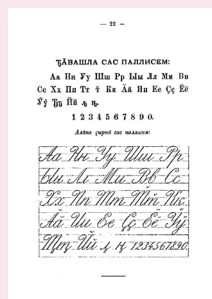 — 22 —
ЂӐВАШЛА САС ПАЛЛИСЕМ:
Аа Ии Уу Шш Рр Ыы Лл Ми Вв
Сс Хх Пп Тт Кк Ӑӑ Ии Ее Ҫҫ Ӗӗ
1 2 3 4 5 6 7 8 9 0.
Алӑпа ҫырнӑ сас паллисем:
Аа Ии Уу Шш Рр
Ыы Лл Мм Вв Сс
Хх Пп Тт Кк
Ӑӑ Ее Ҫҫ Ӗӗ Ӳӳ
1234567890.